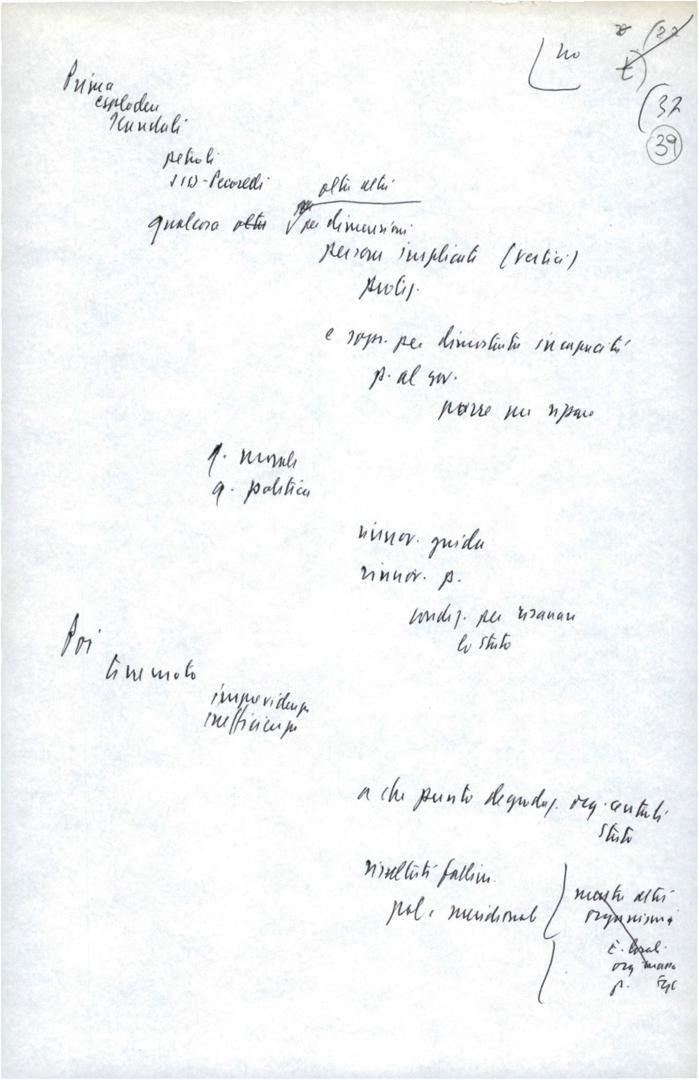 no
(37
39
Prima
esplodere
scandali
petroli
SID-Pecorelli
oltre altri
qualcosa oltre per dimensioni
persone implicate (vertici)
protez.
e sopr. per dimostrata incapacità
p. al gov.
porre un riparo
q. morale
q. politica
rinnov. guida
rinnov. p.
condiz. per risanare
lo Stato
Poi
terremoto
imprevidenza
inefficienza
a che punto degradaz. org. centrali
Stato
risultati fallim.
pol. meridional
mentre altri
organismi
E. locali
org. massa
p.